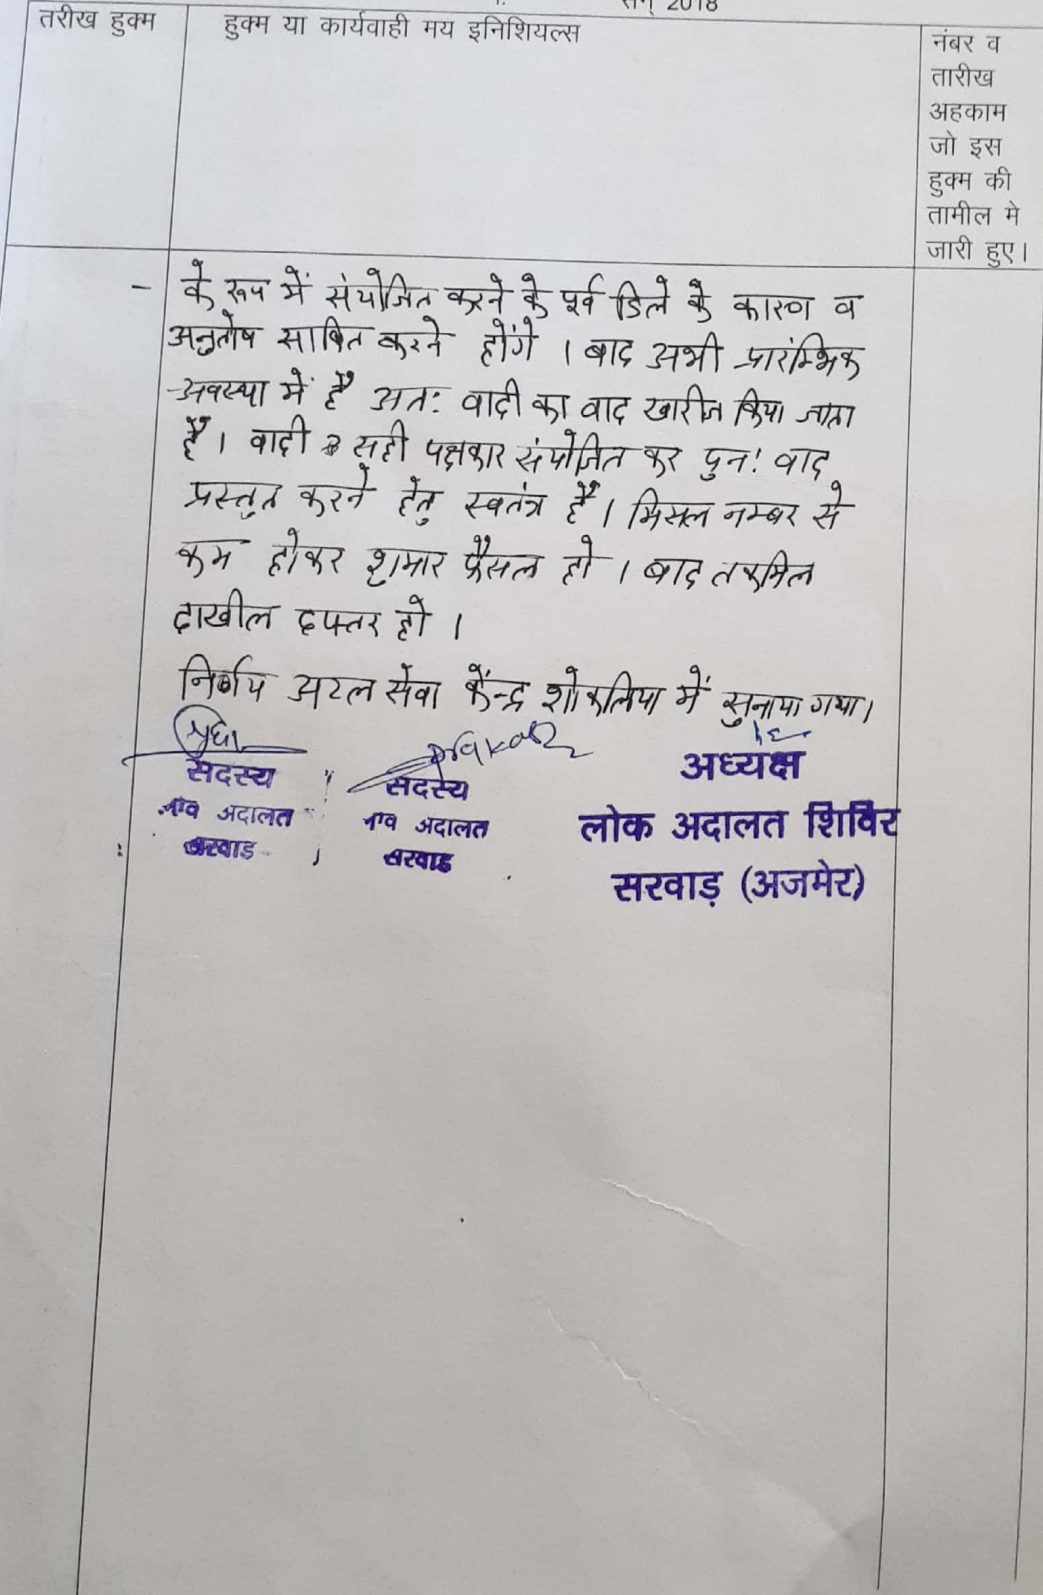 सन् 2018
तरीख हुक्म
हुक्म या कार्यवाही मय इनिशियल्स
नंबर व
तारीख
अहकाम
जो इस
हुक्म की
तामील मे
जारी हुए।
- के रूप में संयोजित करने के पूर्व डिले के कारण व
अनुतोष साबित करने होंगे । वाद अभी प्रारंम्भिक
अवस्था में है अतः वादी का वाद खारीज किया जाता
है । वादी सही पक्षकार संयोजित कर पुनः वाद
प्रस्तुत करने हेतु स्वतंत्र है । मिसल नम्बर से
कम होकर शुमार फैसल हो । बाद तकमिल
दाखील दफ्तर हो ।
निर्णय अटल सेवा केंन्द्र शोकलिया में सुनाया गया।
सदस्य
अदालत
सरवाड
सदस्य
अदालत
सरवाड
अध्यक्ष
लोक अदालत शिविर
सरवाड़ (अजमेर)